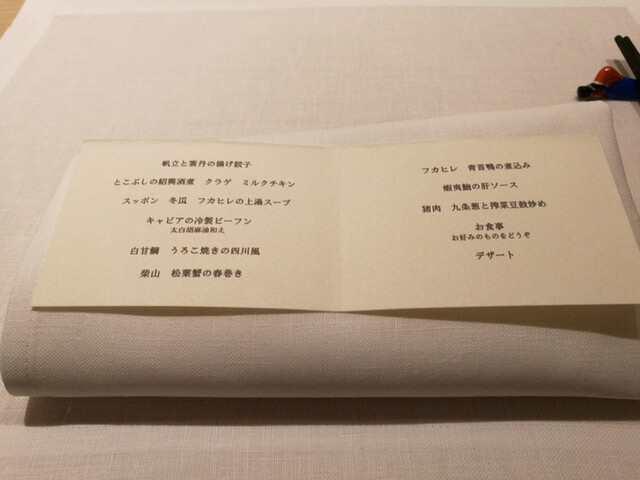 帆立と雲丹の揚げ餃子
とこぶしの紹興酒煮　クラゲ　ミルクチキン
スッポン　冬瓜　フカヒレの上湯スープ
キャビアの冷製ビーフン
太白胡麻油和え
白甘鯛　うろこ焼きの四川風
柴山　松葉蟹の春巻き
フカヒレ　青首鴨の煮込み
蝦夷鮑の肝ソース
猪肉　九条葱と搾菜豆豉炒め
お食事
お好みのものをどうぞ
デザート